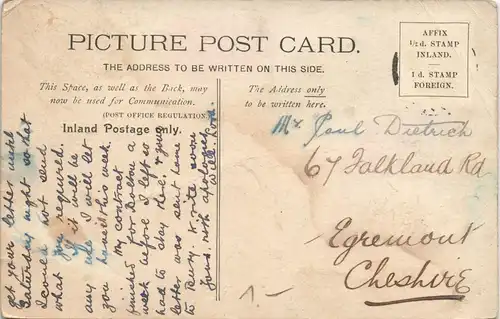 PICTURE POST CARD.
THE ADDRESS TO BE WRITTEN ON THIS SIDE.
AFFIX
½d. STAMP
INLAND.
1d. STAMP
FOREIGN.
This Space, as well as the Back, may
now be used for Communication.
(POST OFFICE REGULATION)
Inland Postage only.
The Address only
to be written here.
get your letter until
Saturday night so that
I could not send
what you required.
If it will be
any use I will let
you have it this week.
My contract
finished for a
week before I left so
had to stay here, & your
letter was sent home
to Bury. Write soon
Yours, with apologies
Mr Paul Dietrich
67 Falkland Rd
Egremont
Cheshire
1.-